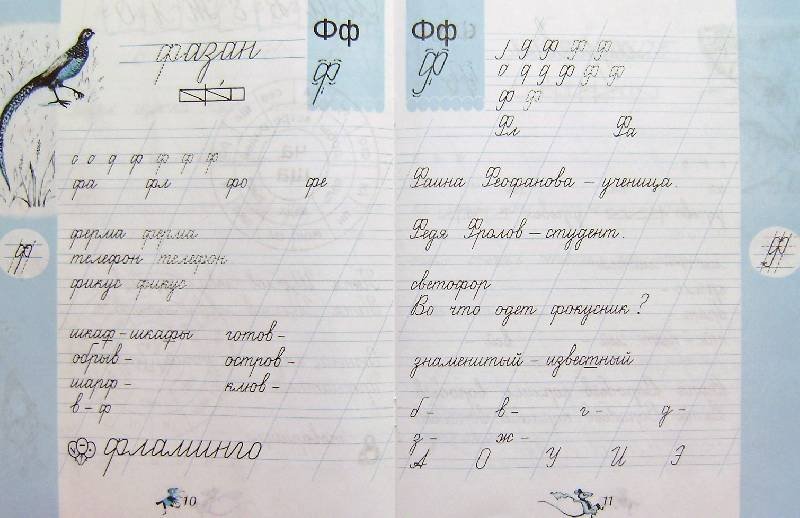 Фф
фазан
ф
о о д ф ф ф ф
фа фл фо фе
ферма ферма
телефон телефон
фикус фикус
шкаф – шкафы готов –
обрыв – остров –
шарф – клюв –
в – ф
фламинго
10
ф
Фф
Ф
Ф Ф
Фл Фа
Фаина Феофанова – ученица.
Федя Фролов – студент.
светофор
Во что одет фокусник?
знаменитый – известный
б – в – г – д –
з – ж –
А О У И Э
11
Ф